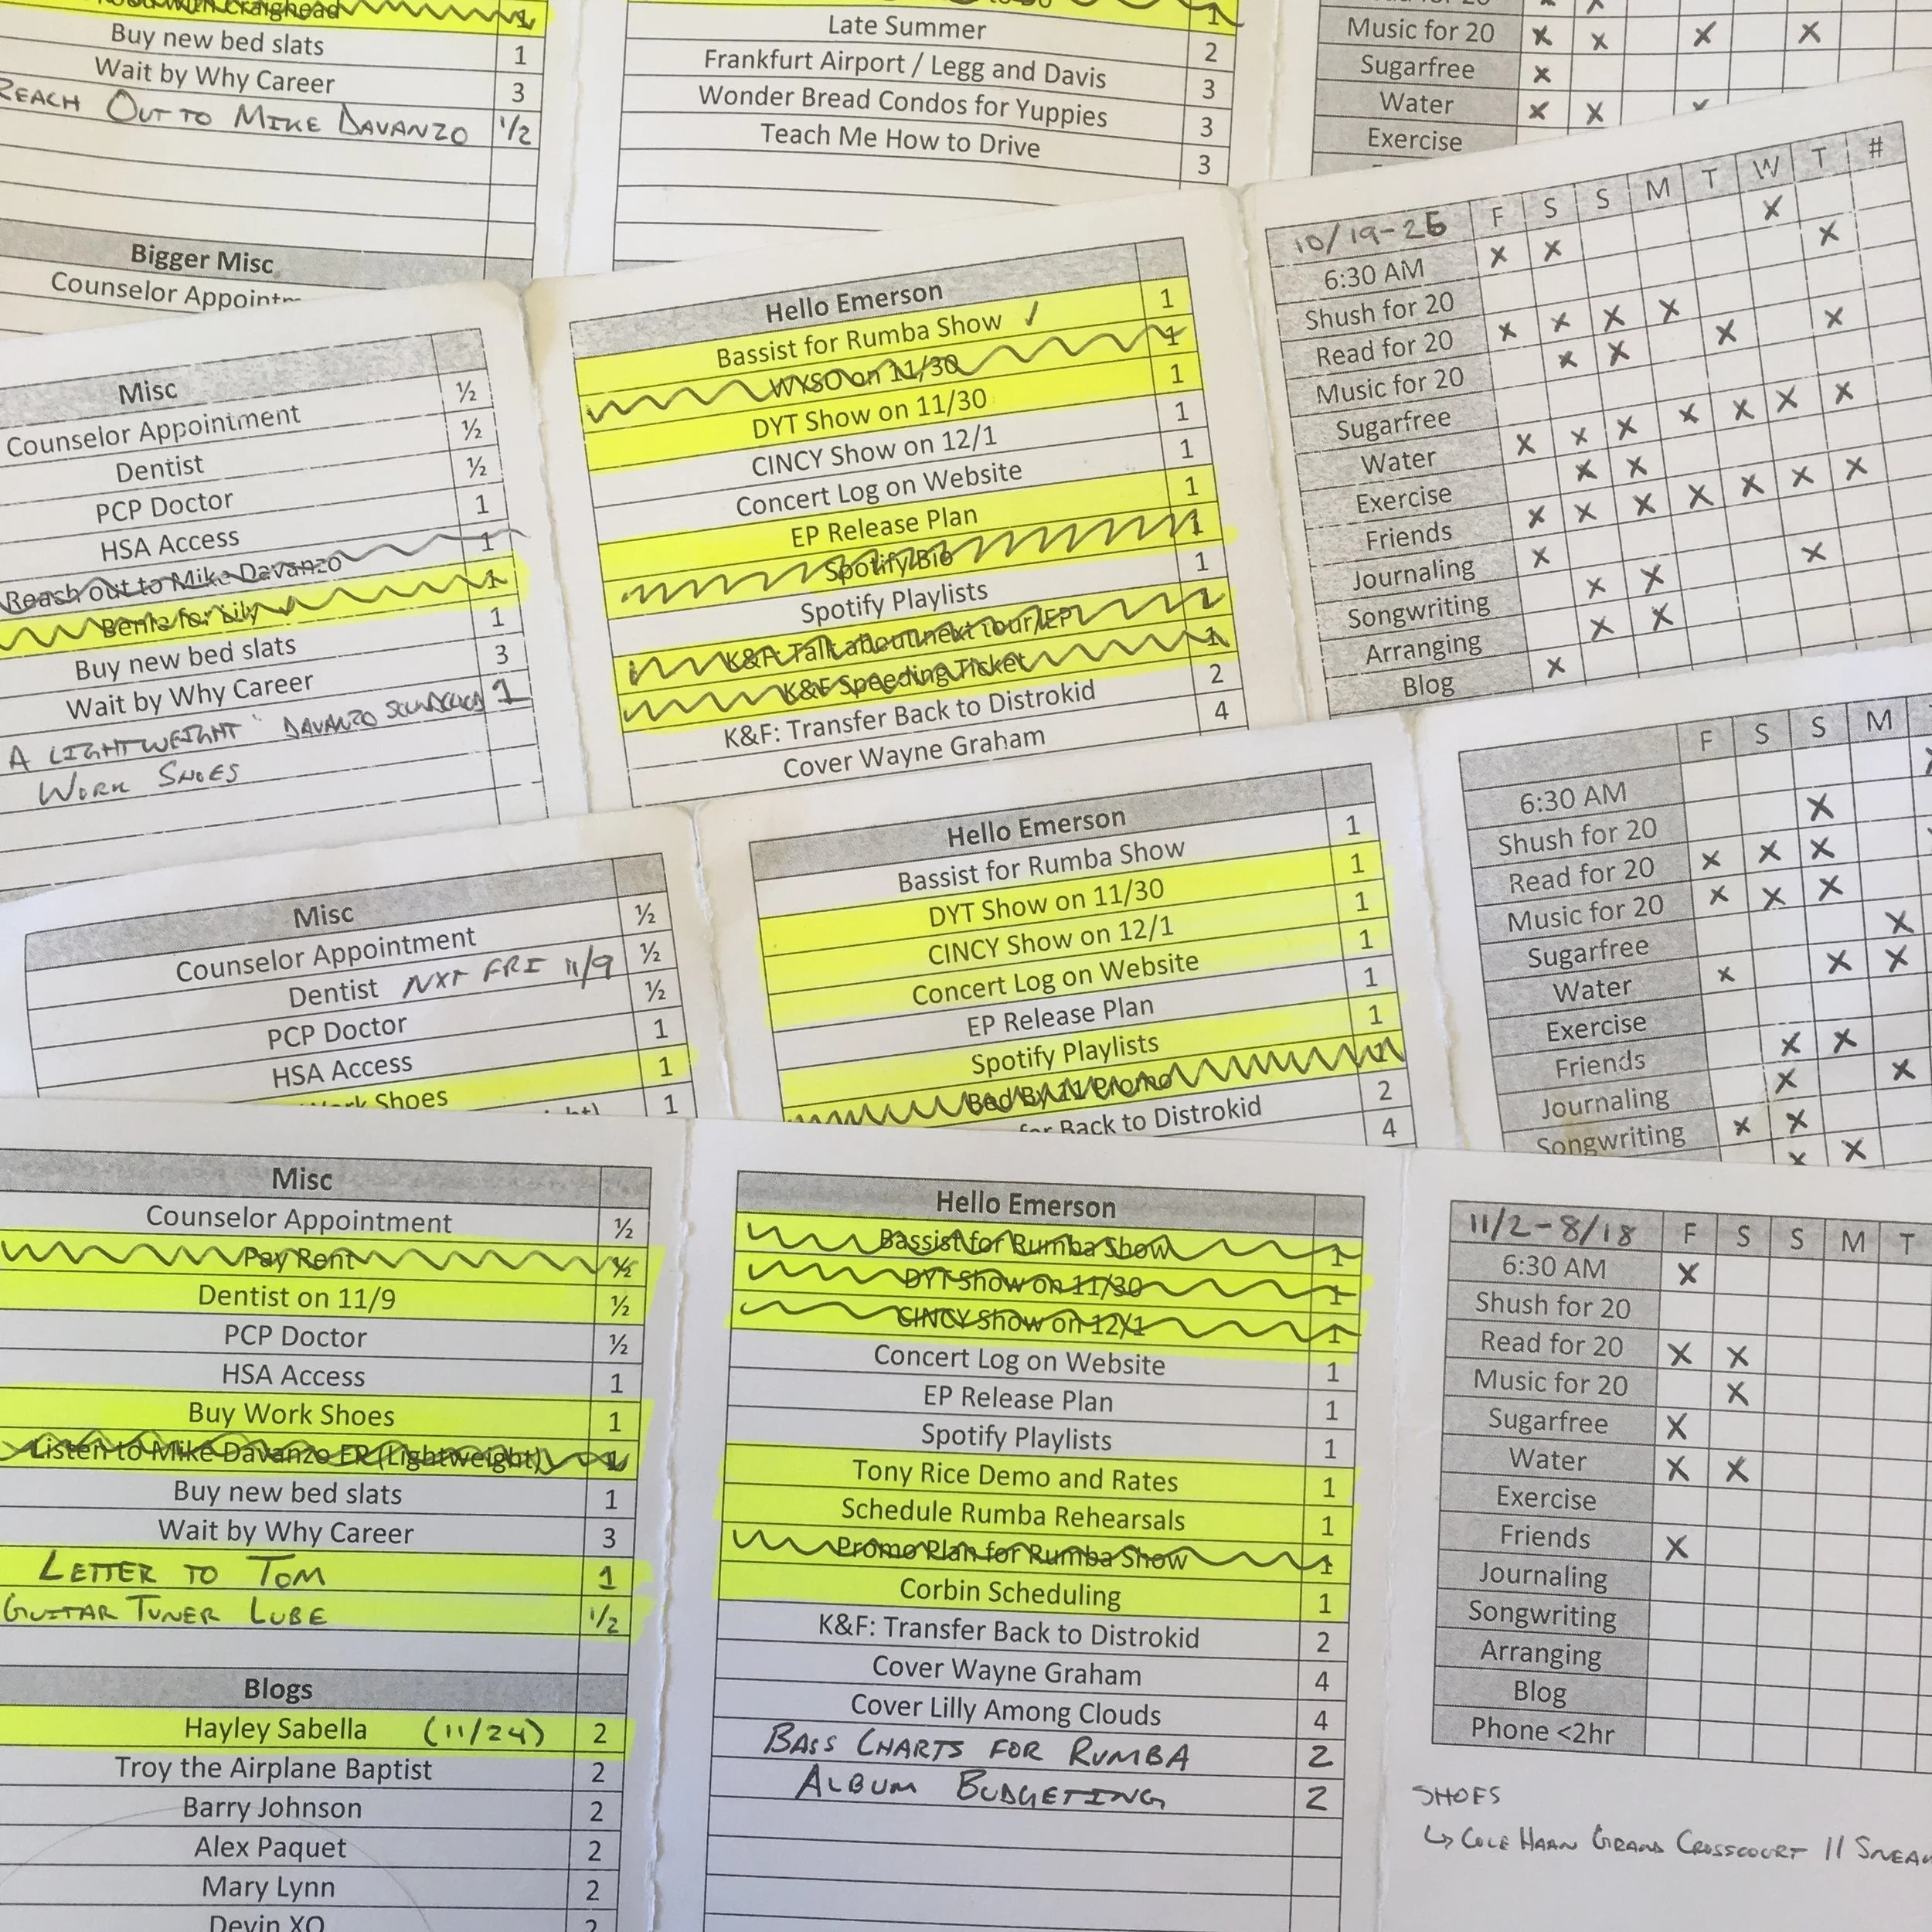 Craighead 1
Buy new bed slats 1
Wait by Why Career 3
REACH OUT TO MIKE DAVANZO 1/2
Bigger Misc
Counselor
1
Late Summer 2
Frankfurt Airport / Legg and Davis 3
Wonder Bread Condos for Yuppies 3
Teach Me How to Drive 3
Music for 20 x x x x
Sugarfree x
Water x x x
Exercise
Misc
Counselor Appointment ½
Dentist ½
PCP Doctor ½
HSA Access 1
Reach out to Mike Davanzo 1
for Lily 1
Buy new bed slats 1
Wait by Why Career 3
A LIGHTWEIGHT DAVANZO 1
WORK SHOES
Hello Emerson
Bassist for Rumba Show ✓ 1
WYSO on 11/30 1
DYT Show on 11/30 1
CINCY Show on 12/1 1
Concert Log on Website 1
EP Release Plan 1
Spotify Bio 1
Spotify Playlists 1
K&F: Talk about next tour/EP 1
K&F Speeding Ticket 1
K&F: Transfer Back to Distrokid 2
Cover Wayne Graham 4
10/19-25 F S S M T W T #
6:30 AM x x x
Shush for 20 x
Read for 20 x x x x
Music for 20 x x x x
Sugarfree
Water x x x x x x x
Exercise x x
Friends x x x x x x x
Journaling x x
Songwriting x x
Arranging x x
Blog x
Misc
Counselor Appointment ½
Dentist NXT FRI 11/9 ½
PCP Doctor ½
HSA Access 1
Work Shoes 1
1
Hello Emerson
Bassist for Rumba Show 1
DYT Show on 11/30 1
CINCY Show on 12/1 1
Concert Log on Website 1
EP Release Plan 1
Spotify Playlists 1
Bed By 11 Promo 1
for Back to Distrokid 2
4
F S S M
6:30 AM
Shush for 20 x
Read for 20 x x x
Music for 20 x x x
Sugarfree x
Water x x x
Exercise
Friends x x
Journaling x x
Songwriting x x
x x
Misc
Counselor Appointment ½
Pay Rent ½
Dentist on 11/9 ½
PCP Doctor ½
HSA Access 1
Buy Work Shoes 1
Listen to Mike Davanzo EP (Lightweight) 1
Buy new bed slats 1
Wait by Why Career 3
LETTER TO TOM 1
GUITAR TUNER LUBE 1/2
Blogs
Hayley Sabella (11/24) 2
Troy the Airplane Baptist 2
Barry Johnson 2
Alex Paquet 2
Mary Lynn 2
Devin XO 2
Hello Emerson
Bassist for Rumba Show 1
DYT Show on 11/30 1
CINCY Show on 12/1 1
Concert Log on Website 1
EP Release Plan 1
Spotify Playlists 1
Tony Rice Demo and Rates 1
Schedule Rumba Rehearsals 1
Promo Plan for Rumba Show 1
Corbin Scheduling 1
K&F: Transfer Back to Distrokid 2
Cover Wayne Graham 4
Cover Lilly Among Clouds 4
BASS CHARTS FOR RUMBA 2
ALBUM BUDGETING 2
11/2-8/18 F S S M T
6:30 AM x
Shush for 20
Read for 20 x x
Music for 20 x
Sugarfree x
Water x x
Exercise
Friends x
Journaling
Songwriting
Arranging
Blog
Phone <2hr
SHOES
↳ COLE HAAN GRAND CROSSCOURT II